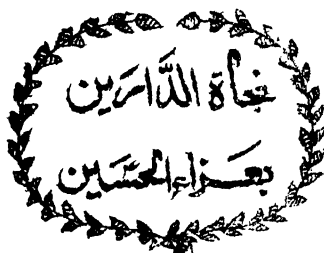 نجاة الدّارين
بعزاء الحسين